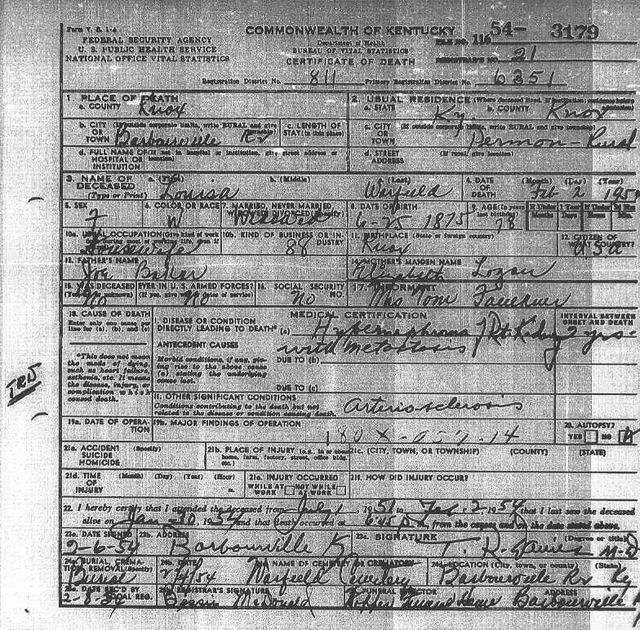 Form V. S. 1-A
FEDERAL SECURITY AGENCY
U. S. PUBLIC HEALTH SERVICE
NATIONAL OFFICE VITAL STATISTICS
COMMONWEALTH OF KENTUCKY
Department of Health
BUREAU OF VITAL STATISTICS
CERTIFICATE OF DEATH
FILE NO. 116 54- 3179
REGISTRAR'S NO. 21
Registration District No. 811 Primary Registration District No. 6351
1. PLACE OF DEATH
a. COUNTY Knox
2. USUAL RESIDENCE (Where deceased lived. If institution: residence before
a. STATE Ky b. COUNTY Knox
b. CITY (If outside corporate limits, write RURAL and give
OR
TOWN Barbourville Ky
c. LENGTH OF
STAY (in this place)
c. CITY (If outside corporate limits, write RURAL and give
OR
TOWN Permon Rural
d. FULL NAME OF (If not in hospital or institution, give street address or
HOSPITAL OR location)
INSTITUTION
d. STREET (If rural, give location)
ADDRESS
3. NAME OF a. (First) b. (Middle) c. (Last)
DECEASED
(Type or Print) Louisa Warfield
4. DATE (Month) (Day) (Year)
OF
DEATH Feb 2 195
5. SEX F
6. COLOR OR RACE W
7. MARRIED, NEVER MARRIED,
Widowed
8. DATE OF BIRTH 6-25 1875
9. AGE (In yrs last birthday) 78
Months Days Hours Min.
10a. USUAL OCCUPATION (Give kind of work
Housewife
10b. KIND OF BUSINESS OR INDUSTRY
88
11. BIRTHPLACE (State or foreign country)
Knox
12. CITIZEN OF
WHAT COUNTRY?
USA
13. FATHER'S NAME
Joe Baker
14. MOTHER'S MAIDEN NAME
Elizabeth Logan
15. WAS DECEASED EVER IN U.S. ARMED FORCES?
No No
16. SOCIAL SECURITY
NO. No
17. INFORMANT
Mrs Tom Faulkner
18. CAUSE OF DEATH
Enter only one cause per
line for (a), (b), and (c)
MEDICAL CERTIFICATION
INTERVAL BETWEEN
ONSET AND DEATH
I. DISEASE OR CONDITION
DIRECTLY LEADING TO DEATH* (a) Hypernephroma Rt Kidney yrs
with metastasis
*This does not mean
the mode of dying,
such as heart failure,
asthenia, etc. It means
the disease, injury, or
complication which
caused death.
ANTECEDENT CAUSES
Morbid conditions, if any, giving
rise to the above cause
(a) stating the underlying
cause last.
DUE TO (b)
DUE TO (c)
II. OTHER SIGNIFICANT CONDITIONS
Conditions contributing to the death but not
related to the disease or condition causing death.
Arteriosclerosis
19a. DATE OF OPERATION
19b. MAJOR FINDINGS OF OPERATION
20. AUTOPSY?
YES NO
21a. ACCIDENT (Specify)
SUICIDE
HOMICIDE
21b. PLACE OF INJURY (e.g., in or about
home, farm, factory, street, office bldg.,
etc.)
21c. (CITY, TOWN, OR TOWNSHIP) (COUNTY) (STATE)
21d. TIME (Month) (Day) (Year) (Hour)
OF
INJURY m.
21e. INJURY OCCURRED
WHILE AT NOT WHILE
WORK AT WORK
21f. HOW DID INJURY OCCUR?
22. I hereby certify that I attended the deceased from July 1 1951 to Feb. 2, 1954 that I last saw the deceased
alive on Jan -30, 1954 and that death occurred at 6:45 m., from the causes and on the date stated above.
23a. DATE SIGNED 2-6-54
23b. ADDRESS Barbourville K
23c. SIGNATURE (Degree or title)
T. R. Davies M-D
24a. BURIAL, CREMATION,
REMOVAL (Specify)
Burial
24b. DATE 2/4/54
24c. NAME OF CEMETERY OR CREMATORY
Warfield Cemetery
24d. LOCATION (City, town, or county) (State)
Barbourville Ky
25a. DATE REC'D BY
LOCAL REG.
2-8-54
25b. REGISTRAR'S SIGNATURE
McDonald
26. FUNERAL DIRECTOR
Hopper Funeral Home Barbourville